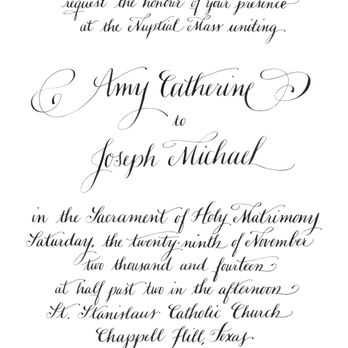 request the honour of your presence
at the Nuptial Mass uniting
Amy Catherine
to
Joseph Michael
in the Sacrament of Holy Matrimony
Saturday, the twenty-ninth of November
two thousand and fourteen
at half past two in the afternoon
St. Stanislaus Catholic Church
Chappell Hill, Texas